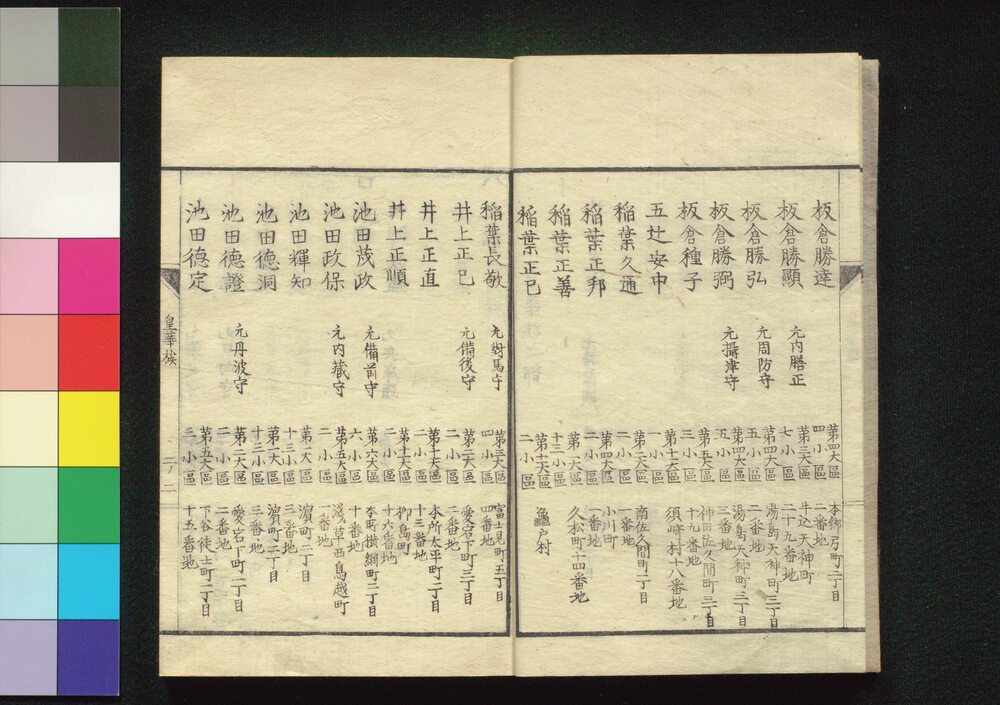 板倉勝達 第四大區四小區 本郷弓町二丁目二番地
板倉勝顯 元内膳正 第三大區七小區 牛込天神町二十九番地
板倉勝弘 元周防守 第四大區五小區 湯島天神町三丁目二番地
板倉勝弼 元攝津守 第四大區五小區 湯島天神町三丁目三番地
板倉種子 第五大區三小區 神田佐久間町二丁目十九番地
五辻安中 第十一大區一小區 須崎村十八番地
稲葉久通 第一大區二小區 南佐久間町二丁目一番地
稲葉正邦 第四大區二小區 小川町一番地
稲葉正善 第一大區十三小區 久松町十四番地
稲葉正巳 第十一大區二小區 龜戸村
稲葉長敬 元對馬守 第三大區四小區 富士見町五丁目四番地
井上正已 元備後守 第二大區二小區 愛宕下町三丁目二番地
井上正直 第十一大區二小區 本所太平町二丁目十三番地
井上正順 第十一大區二小區 柳島町十六番地
池田茂政 元備前守 第六大區六小區 本所横綱町二丁目十番地
池田政保 元内藏守 第五大區二小區 淺草西鳥越町一番地
池田輝知 第一大區十三小區 濱町二丁目三番地
池田德洞 第一大區十三小區 濱町二丁目三番地
池田德證 元丹波守 第二大區二小區 愛宕下町二丁目二番地
池田德定 第五大區三小區 下谷徒士町二丁目十五番地
皇華族
二ノ二